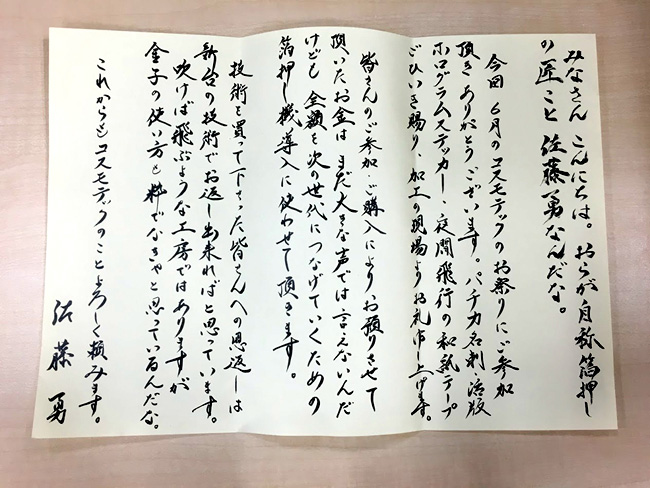 みなさん こんにちは。おらが自称箔押し
の匠こと 佐藤勇なんだな。
今回 6月のコスモテックのお祭りにご参加
頂き ありがとうございます。パチカ名刺・活版
ホログラムステッカー、夜間飛行の和紙テープ
ごひいき賜り、加工の現場よりお礼申し上げます。
皆さんのご参加・ご購入によりお預りさせて
頂いたお金は まだ大きな声では言えないんだ
けども 全額を次の世代につなげていくための
箔押し機導入に使わせて頂きます。
技術を買って下さった皆さんへの恩返しは
新台の技術でお返し出来ればと思っています。
吹けば飛ぶような工房ではありますが
金子の使い方も粋でなきゃと思っているんだな。
これからもコスモテックのことよろしく頼みます。
佐藤 勇